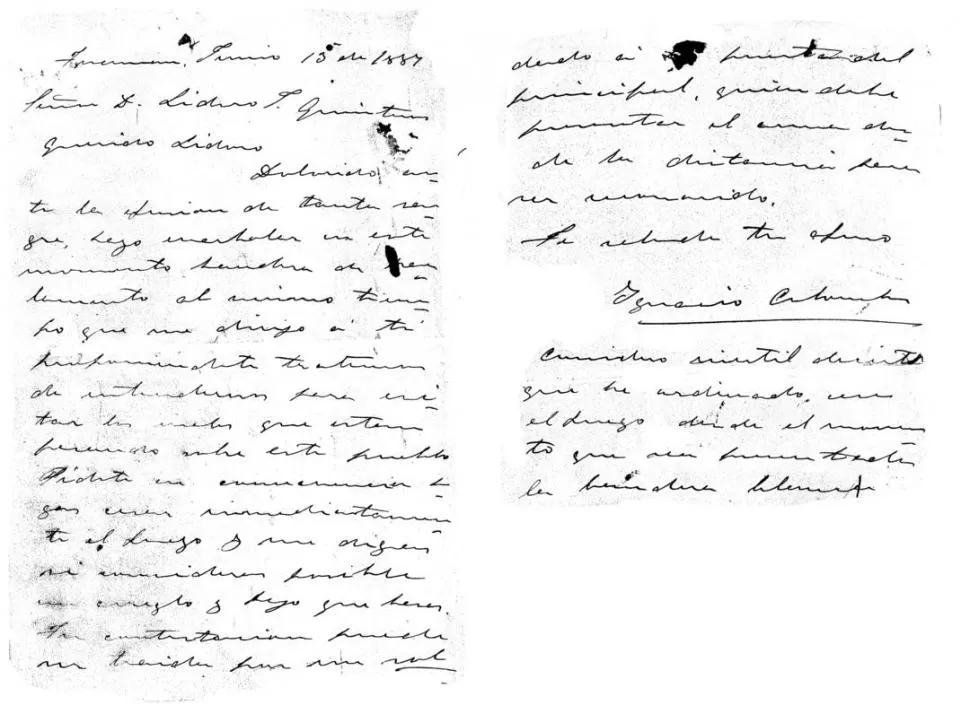 Tucuman, Junio 13 de 1887
Señor D. Lidoro J. Quinteros
Querido Lidoro
Dolorido an-
te la efusion de tanta san-
gre, hago enarbolar en este
momento bandera de par-
lamento al mismo tiem-
po que me dirijo á tí
proponiendote tratemos
de entendernos para evi-
tar los males que estan
pesando sobre este pueblo
Pidote en consecuencia ha-
gas cesar inmediatamen-
te el fuego y me digas
si consideras posible
un arreglo y bajo que bases.
Tu contestacion puede
ser traida por un sol
dado á puertas del
principal, quien debe
presentar el arma des-
de la distancia para
ser reconocido.
Te saluda tu afmo
Ignacio Colombres
Considero inutil decirte
que he ordenado, cese
el fuego desde el momen
to que sea presentada
la bandera blanca